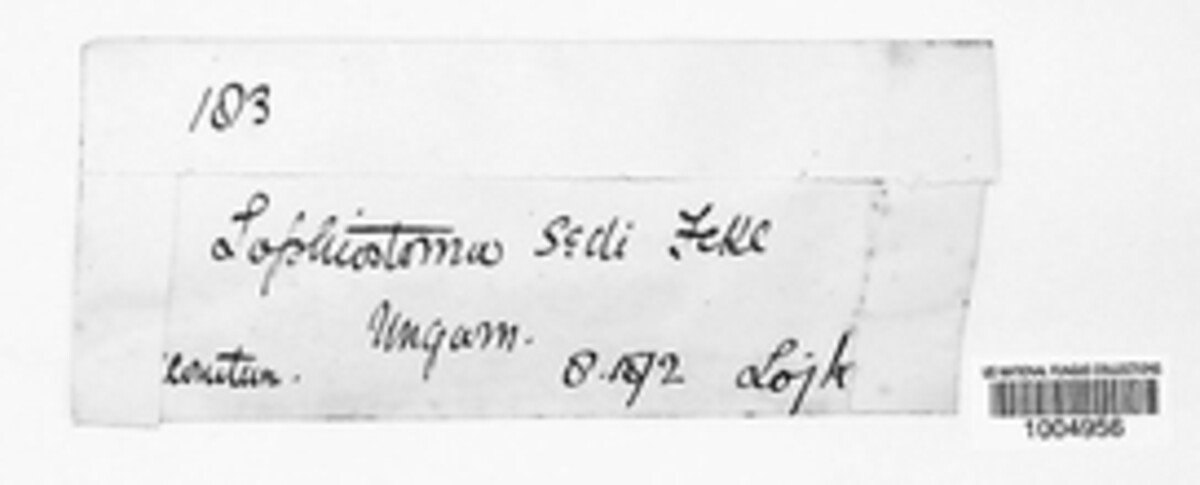 183
Lophiostoma Sedi Fckl
Ungarn.
8.1872 Lojk
US NATIONAL FUNGUS COLLECTIONS
1004956